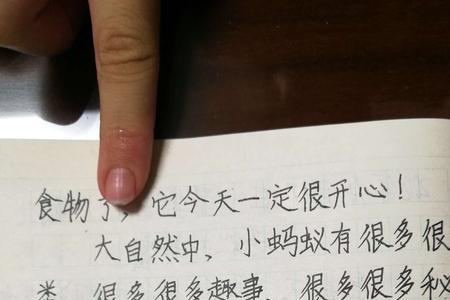 食物了，它今天一定很开心！
大自然中，小蚂蚁有很多很
类，很多很多趣事，很多很多秘